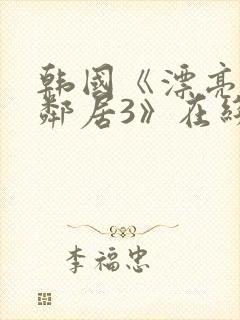 韩国《漂亮
邻居3》在线
李福忠